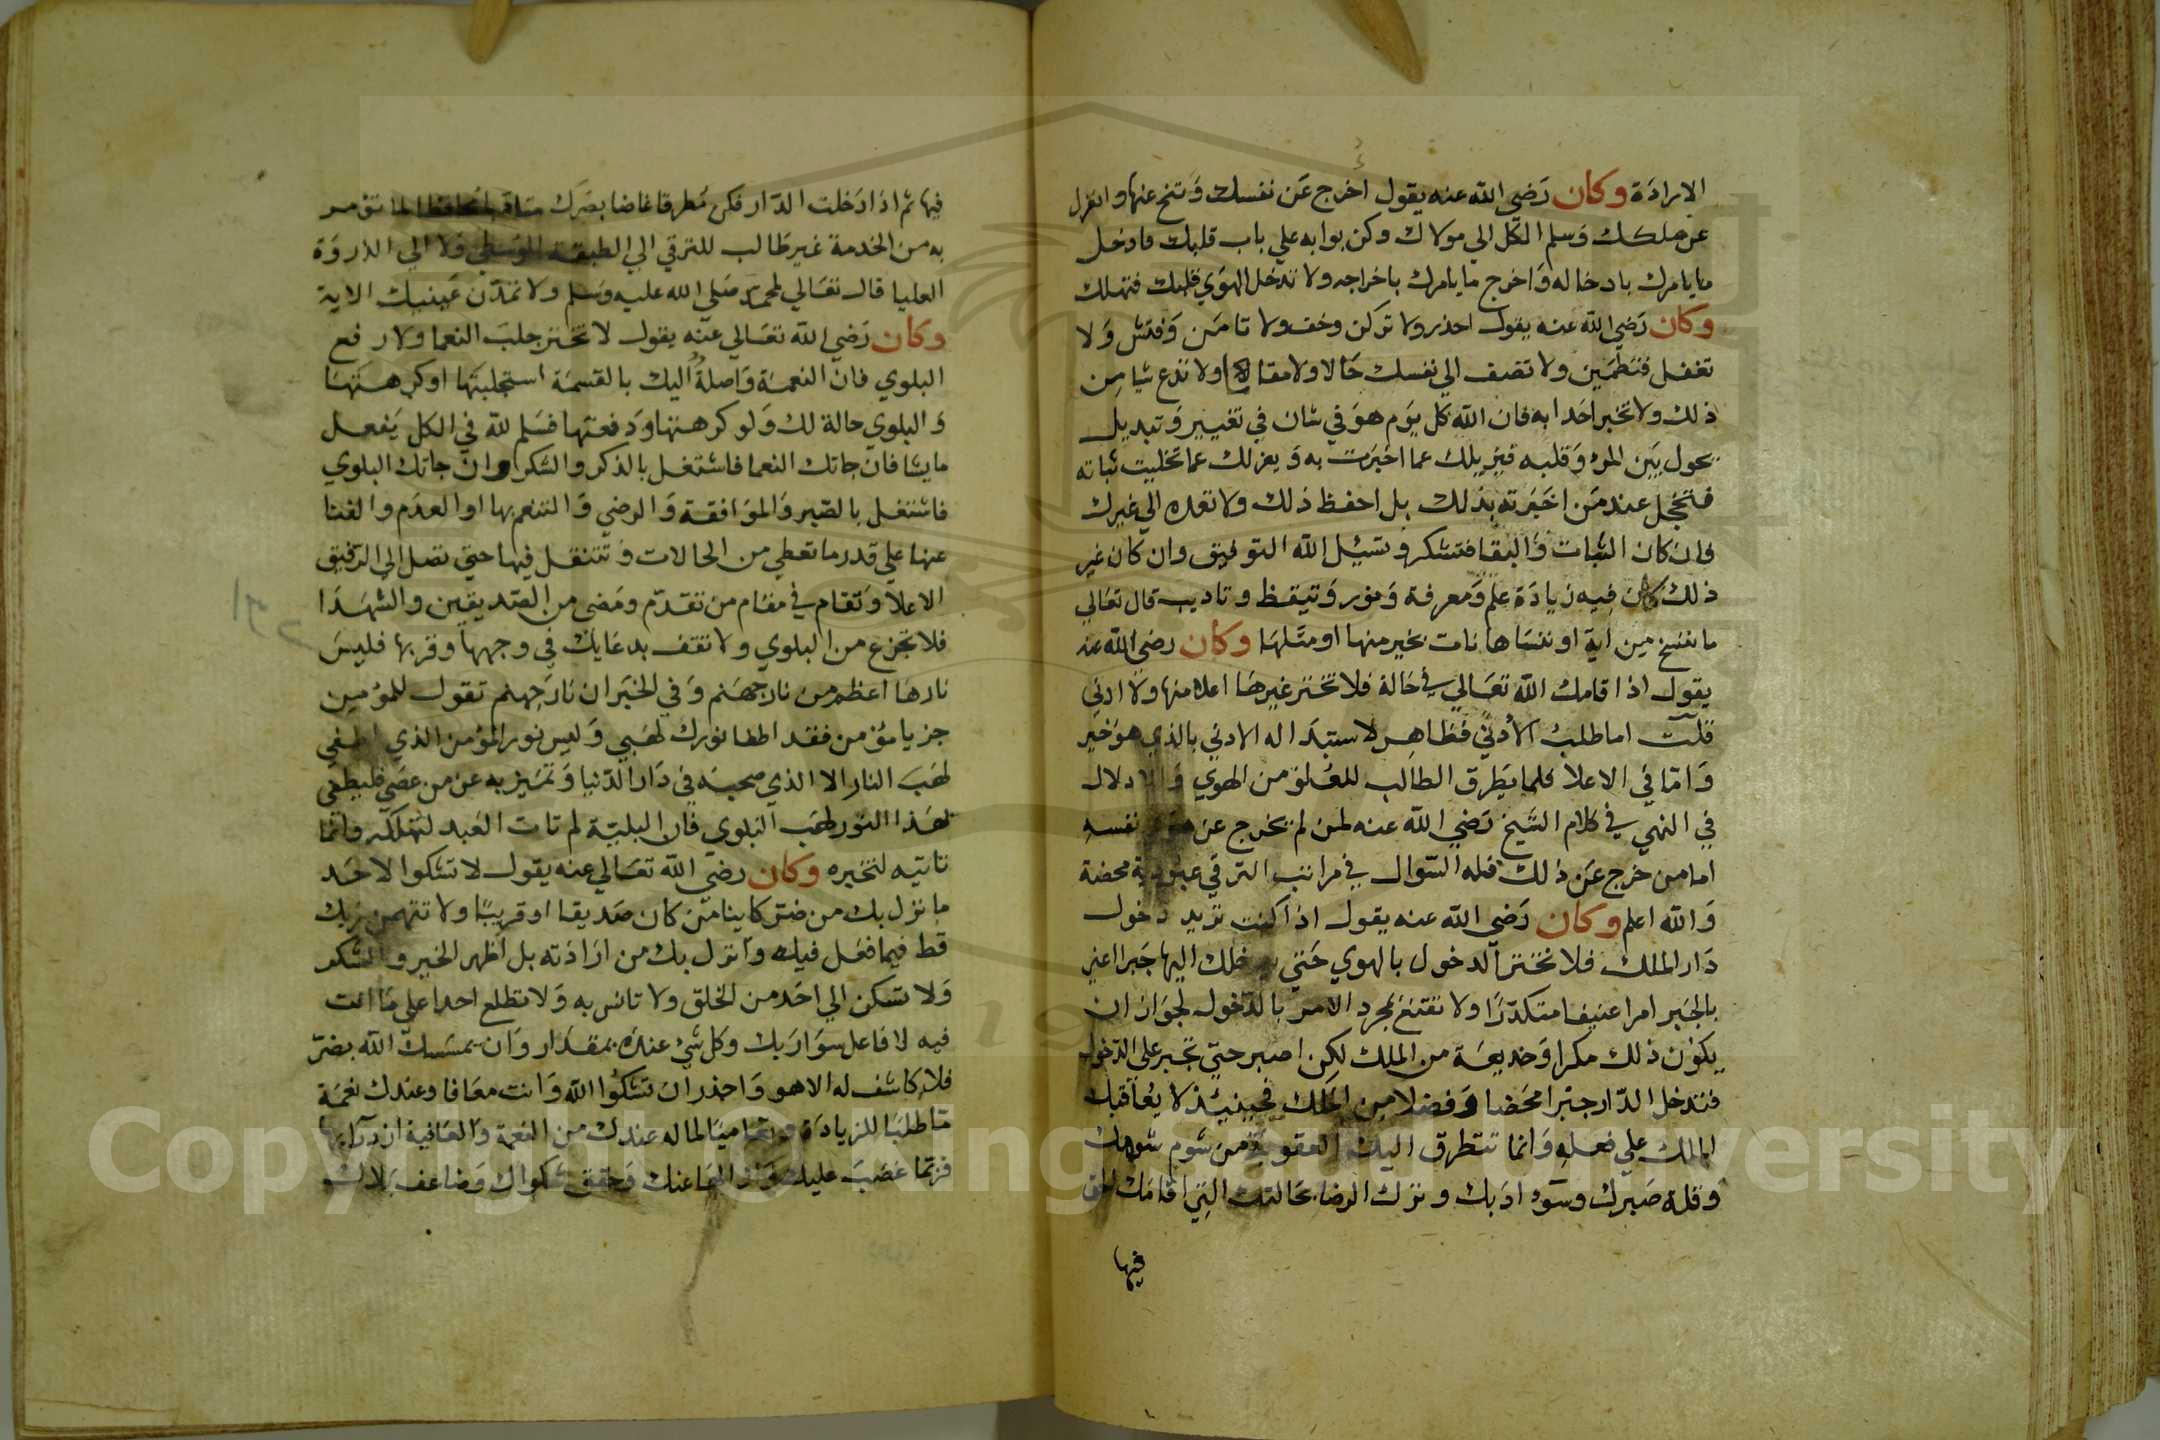 الارادة وكان رضي الله عنه يقول اخرج عن نفسك وتنح عنها وانعزل
عن ملكك وسلم الكل الي مولاك وكن بوابه علي باب قلبك فادخل
ما يامرك بادخاله واخرج ما يامرك باخراجه ولا تدخل الهوي قلبك فتهلك
وكان رضي الله عنه يقول احذر ولا تركن وخف ولا تامن وفتش ولا
تغفل فتطمين ولا تضف الي نفسك حالا ولا مقالا ولا تدع شيا من
ذلك ولا تخبر احدا به فان الله كل يوم هو في شان في تغيير وتبديل
يحول بين المرء وقلبه فيزيلك عما اخبرت به ويعزلك عما تخليت ثباته
فتخجل عند من اخبرته بذلك بل احفظ ذلك ولا تعده الي غيرك
فان كان الثبات والبقا فتشكر وتسئل الله التوفيق وان كان غير
ذلك كان فيه زيادة علم ومعرفة ونور وتيقظ وتاديب قال تعالي
ما ننسخ من اية او ننساها نات بخير منها او مثلها وكان رضي الله عنه
يقول اذا اقامك الله تعالي في حالة فلا تختر غيرها اعلا منها ولا ادني
قلت اما طلب الأدني فظاهر لاستبداله الادني بالذي هو خير
واما في الاعلا فلما يطرق الطالب للعلو من الهوي والادلال
في النهي في كلام الشيخ رضي الله عنه لمن لم يخرج عن نفسه
اما من خرج عن ذلك فله السوال في مراتب الترقي عبودية محضة
والله اعلم وكان رضي الله عنه يقول اذا كنت تريد دخول
دار الملك فلا تختر الدخول بالهوي حتي يدخلك اليها جبرا اعني
بالجبر امرا عنيفا متكدرا ولا تقتنع بمجرد الامر بالدخول لجواز ان
يكون ذلك مكرا وخديعة من الملك لكن اصبر حتي تجبر علي الدخول
فتدخل الدار جبرا محضا وفضلا من الملك فحينيذ لا يعاقبك
الملك علي فعله وانما تتطرق اليك العقوبة من شوم شرهك
وقلة صبرك وسوء ادبك وترك الرضا بحالتك التي اقامك الحق
فيها
فيها ثم اذا دخلت الدار فكن مطرقا غاضا بصرك متادبا محافظا لما تؤمر
به من الخدمة غير طالب للترقي الي الطبقة الوسطي ولا الي الذروة
العليا قال تعالي لمحمد صلي الله عليه وسلم ولا تمدن عينيك الاية
وكان رضي الله تعالي عنه يقول لا تختر جلب النعما ولا دفع
البلوي فان النعمة واصلة اليك بالقسمة استجلبتها او كرهتها
والبلوي حالة لك ولو كرهتها ودفعتها فسلم لله في الكل يفعل
ما يشا فان جاتك النعما فاشتغل بالذكر والشكر وان جاتك البلوي
فاشتغل بالصبر والموافقة والرضي والتنعم بها او العدم والفنا
عنها علي قدر ما تعطي من الحالات وتتنقل فيها حتي تصل الي الرفيق
الاعلا وتقام في مقام من تقدم ومضي من الصديقين والشهدا
فلا تجزع من البلوي ولا تقف بدعايك في وجهها وقربها فليس
نارها اعظم من نار جهنم وفي الخبر ان نار جهنم تقول للمؤمن
جز يا مؤمن فقد اطفا نورك لهبي وليس نور المؤمن الذي اطفي
لهب النار الا الذي صحبه في دار الدنيا وتميز به عن من عصي فليطفي
لهذا النور لهب البلوي فان البلية لم تات العبد لتهلكه وانما
تاتيه لتختبره وكان رضي الله تعالي عنه يقول لا تشكوا لاحد
ما نزل بك من ضر كاينا من كان صديقا او قريبا ولا تتهمن ربك
قط فيما فعل فيك وانزل بك من ارادته بل اظهر الخير والشكر
ولا تسكن الي احد من الخلق ولا تانس به ولا تطلع احدا علي ما انت
فيه لا فاعل سوا ربك وكل شيء عنده بمقدار وان يمسسك الله بضر
فلا كاشف له الا هو واحذر ان تشكوا الله وانت معافا وعندك نعمة
ما طلبا للزيادة وتعاميا لما له عندك من النعمة والعافية ازدراء بها
فربما غضب عليك وازالها عنك وحقق شكواك وضاعف بلاك